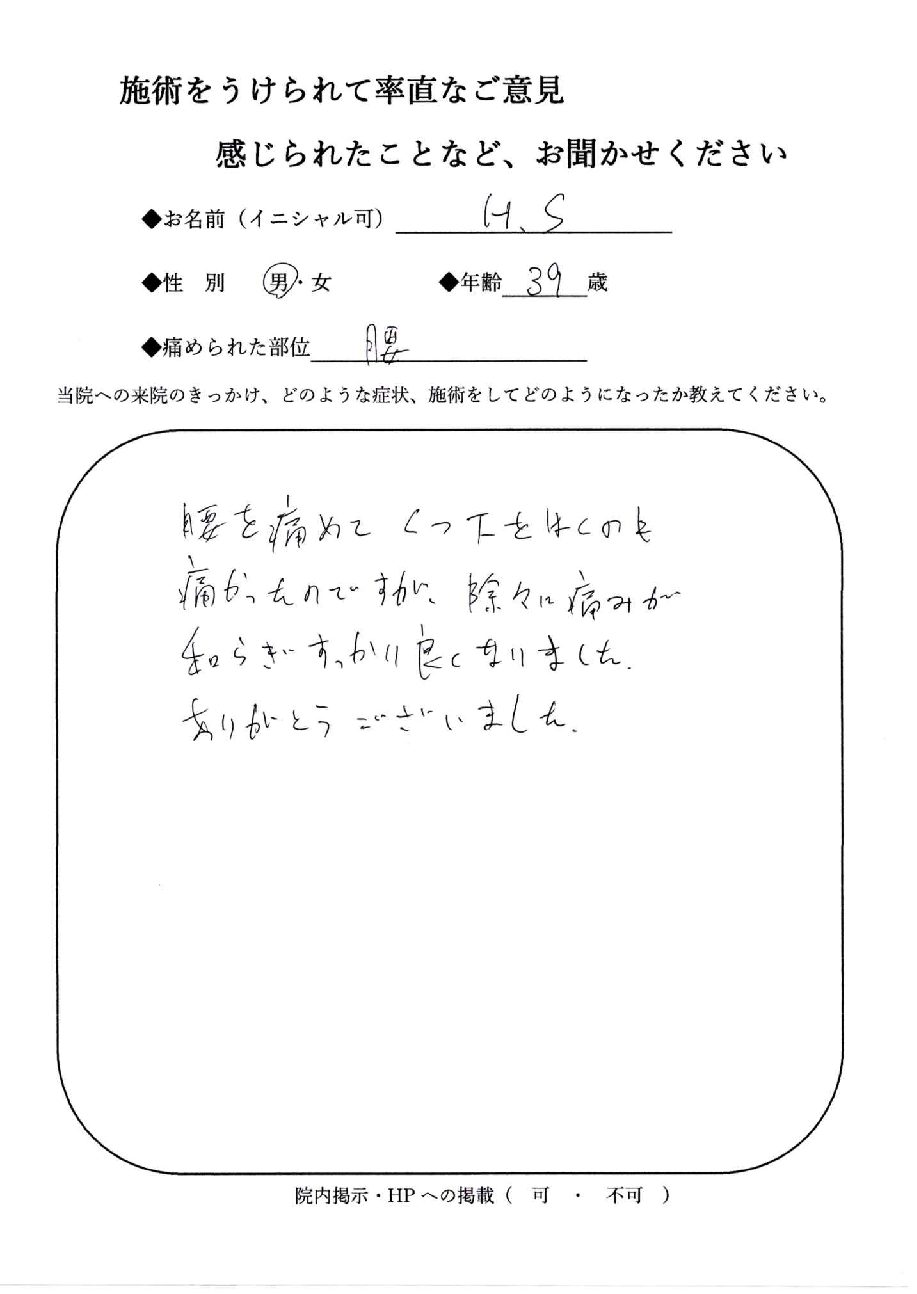 施術をうけられて率直なご意見
感じられたことなど、お聞かせください
◆お名前（イニシャル可） H、S
◆性 別 男・女 ◆年齢 39 歳
◆痛められた部位 腰
当院への来院のきっかけ、どのような症状、施術をしてどのようになったか教えてください。
腰を痛めて くつ下をはくのも
痛かったのですが、除々に痛みが
和らぎすっかり良くなりました.
ありがとうございました.
院内掲示・HPへの掲載（ 可 ・ 不可 ）